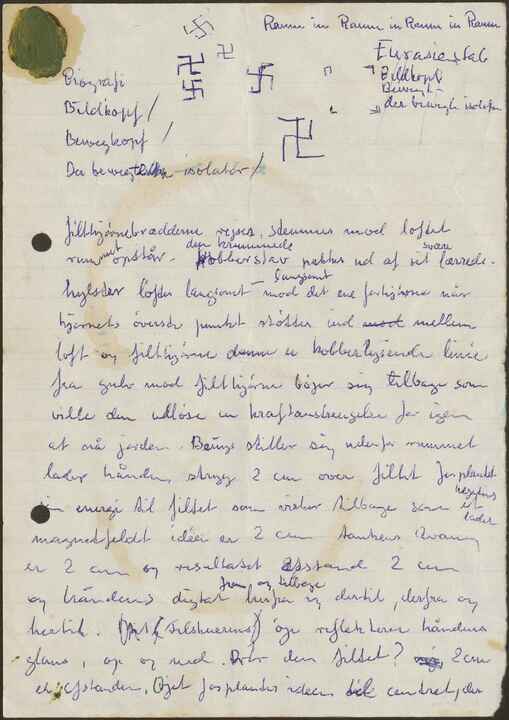 Raum in Raum in Raum in Raum
Eurasienstab
Biografi
Bildkopf
Bildkopf /
Bewegk
Bewegkopf /
der bewegte isolator
Der bewegte isolatór /
filthjørnebrædderne rejses, stemmes mod loftet
rummet opstår. den krummede kobberstav pakkes ud af sit svære lærreds-
hylster løftes langsomt – langsomt mod det ene filthjørne når
hjørnets øverste punkt støttes ind mellem
loft og filthjørne denne er kobberlysende linie
fra gulv mod filthjørne bøjer sig tilbage som
ville den udløse en kraftanstrengelse for igen
at nå jorden. Beuys stiller sig udenfor rummet
lader hånden stryge 2 cm over filtet forplanter
sin energi til filtet som vister tilbage som et
magnetfeldt idéen er 2 cm tankens tvang
er 2 cm og resultatet afstand 2 cm
og håndens frem og tilbage herfra og dertil, derfra og
hertil. øje reflekterer håndens
glans, op og ned. Rør den filtet? 2 cm
er afstanden, Øjet forplanter ideen centret, der